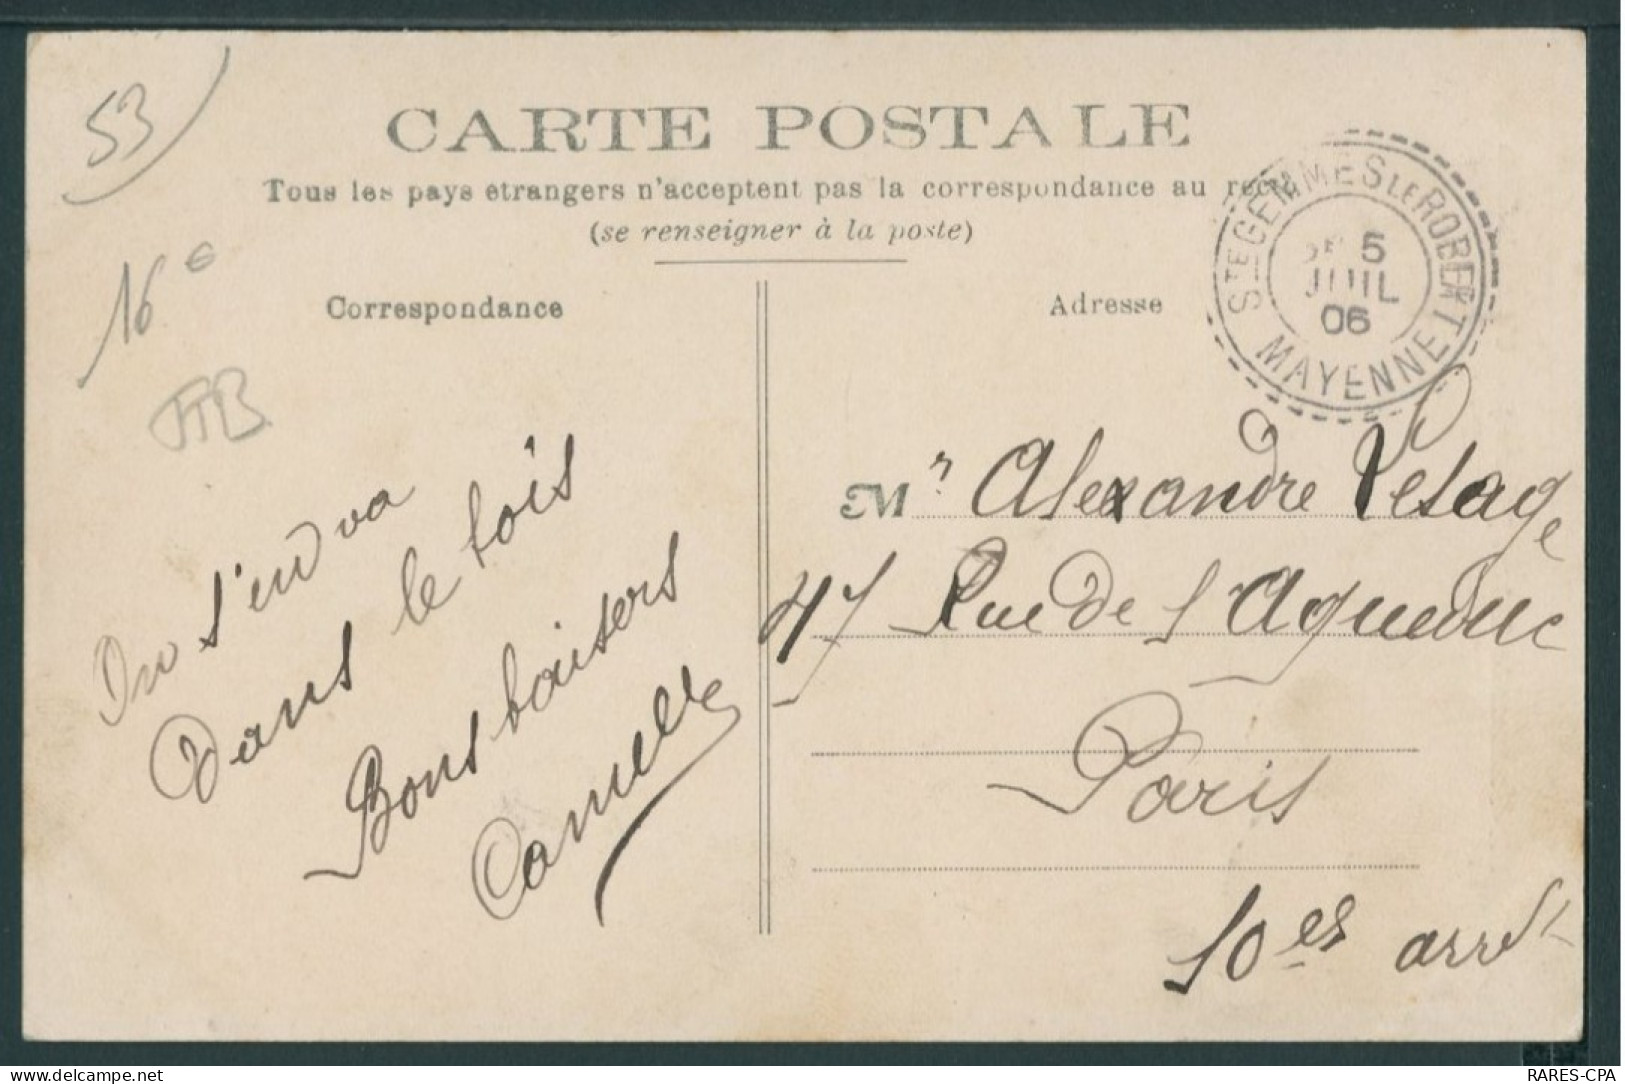 53
CARTE POSTALE
Tous les pays étrangers n'acceptent pas la correspondance au recto
(se renseigner à la poste)
STE GEMMES LE ROBERT
5
JUIL
06
MAYENNE
16 €
Correspondance
Adresse
TTB
On s'en va
dans le bois
Bons baisers
Mr Alexandre Lesage
47 Rue de l'Aqueduc
Paris
10es arrdt
RARES-CPA